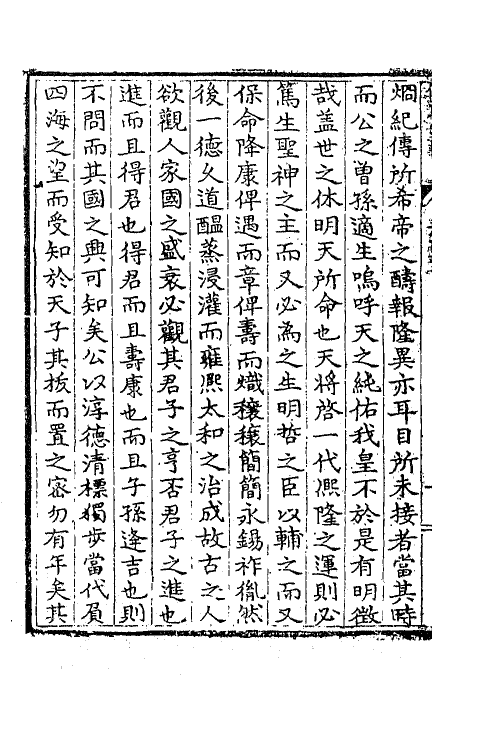 烱紀傳所希帝之疇報隆異亦耳目所未接者當其時
而公之曽孫適生嗚呼天之純佑我皇不於是有明徴
哉盖世之休明天所命也天將啓一代熈隆之運則必
篤生聖神之主而又必為之生明哲之臣以輔之而又
保命降康俾遇而章俾壽而熾穰穰簡簡永錫祚胤然
後一德乆道醖蒸浸灌而雍熈太和之治成故古之人
欲觀人家國之盛衰必觀其君子之亨否君子之進也
進而且得君也得君而且壽康也而且子孫逢吉也則
不問而其國之興可知矣公以淳德清標獨步當代負
四海之望而受知於天子其拔而置之密勿有年矣其